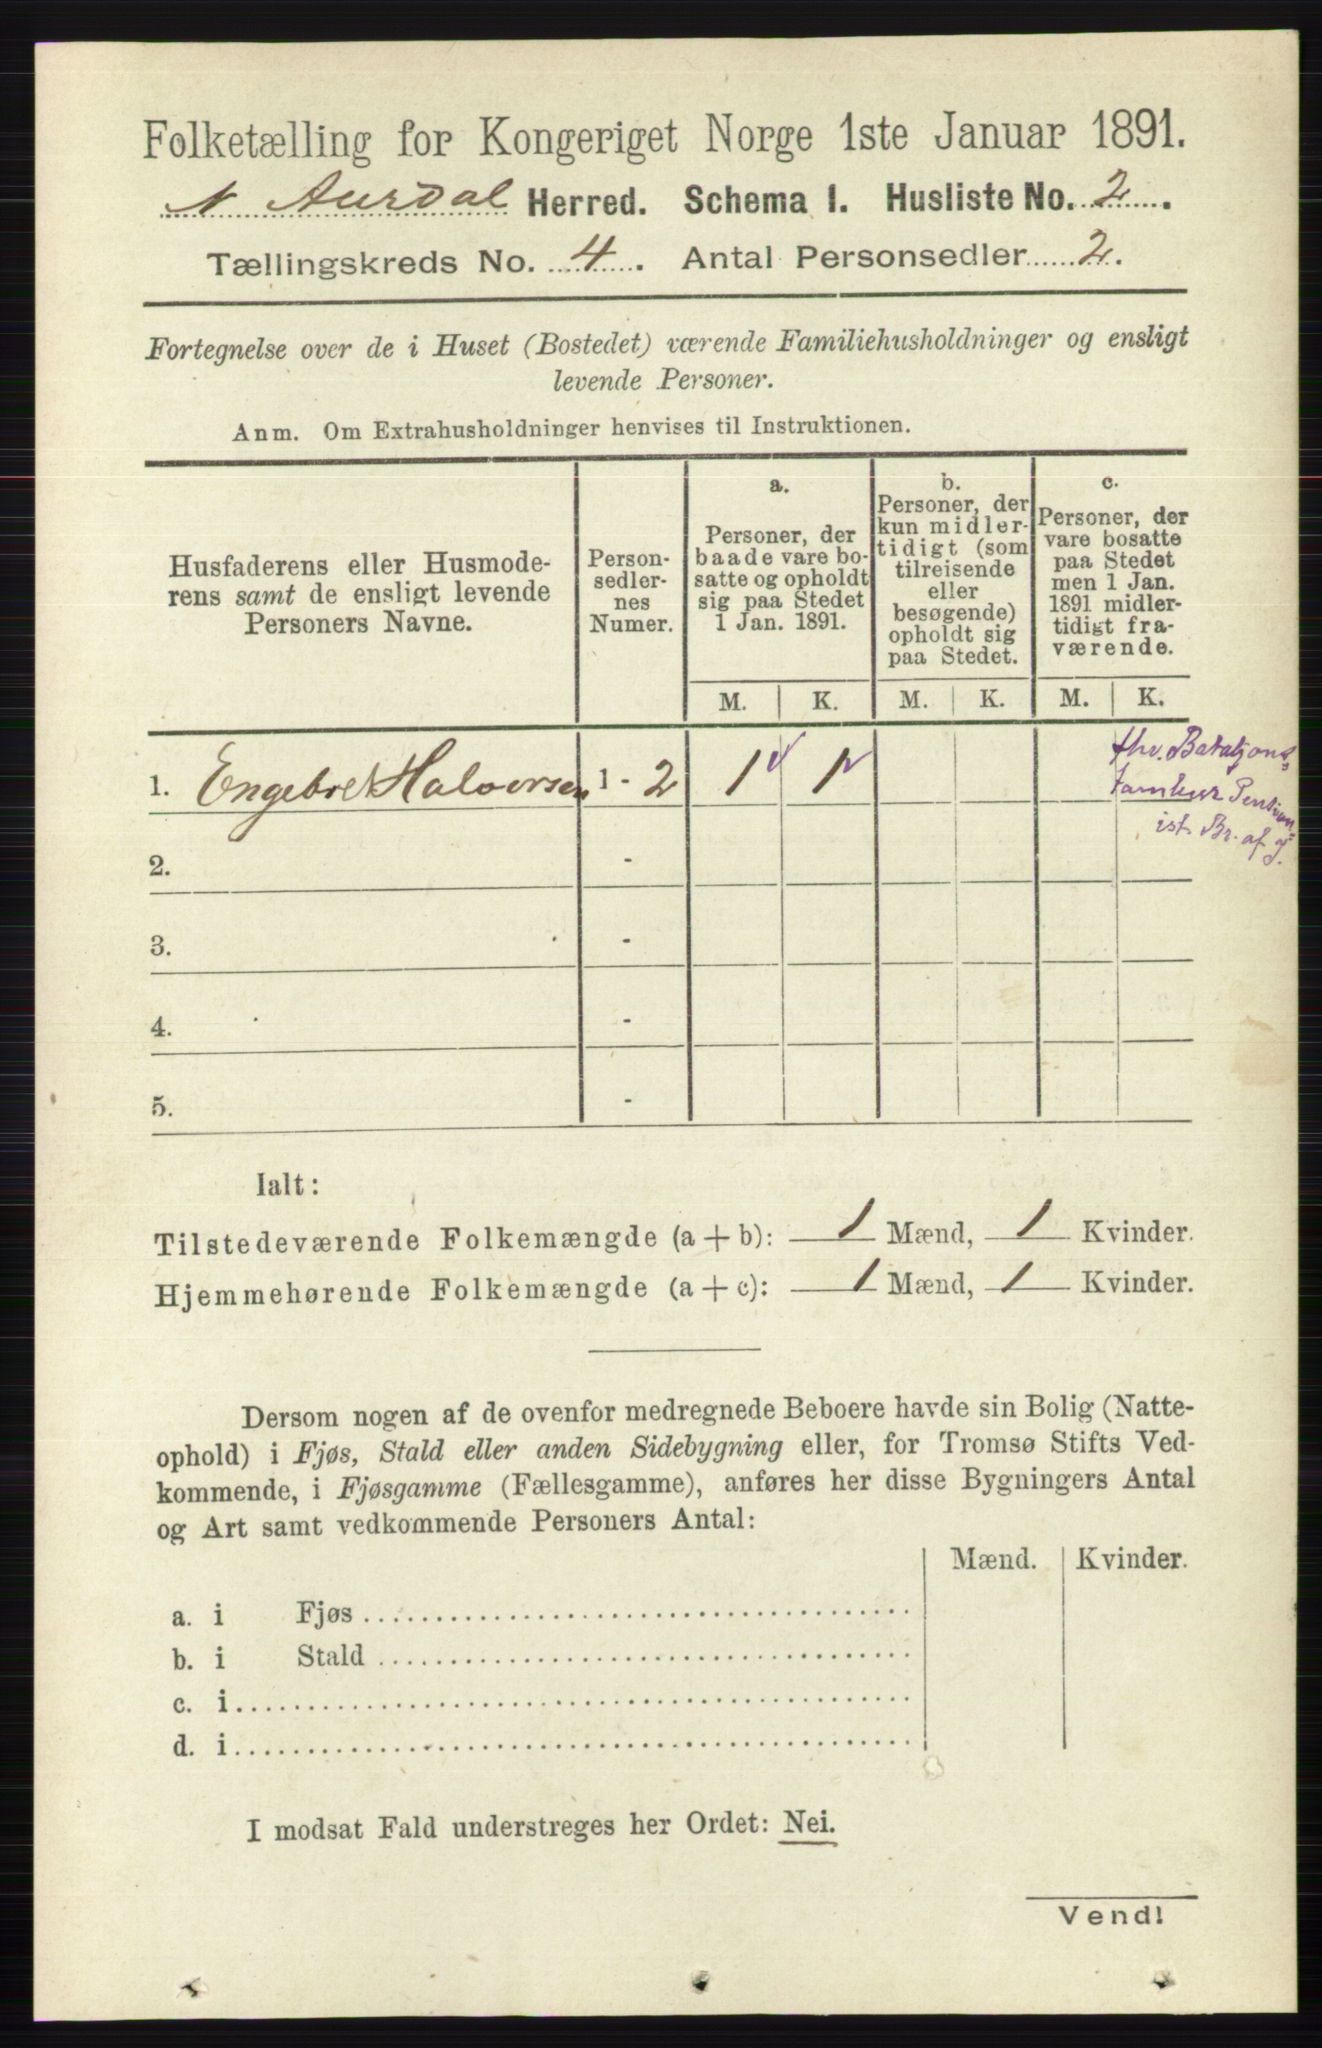 Folketælling for Kongeriget Norge 1ste Januar 1891.
N Aurdal Herred. Schema I. Husliste No. 2.
Tællingskreds No. 4. Antal Personsedler 2.
Fortegnelse over de i Huset (Bostedet) værende Familiehusholdninger og ensligt
levende Personer.
Anm. Om Extrahusholdninger henvises til Instruktionen.
Husfaderens eller Husmode-
rens samt de ensligt levende
Personers Navne.
Person-
sedler-
nes
Numer.
a.
Personer, der
baade vare bo-
satte og opholdt
sig paa Stedet
1 Jan. 1891.
b.
Personer, der
kun midler-
tidigt (som
tilreisende
eller
besøgende)
opholdt sig
paa Stedet.
c.
Personer, der
vare bosatte
paa Stedet
men 1 Jan.
1891 midler-
tidigt fra-
værende.
M. K. M. K. M. K.
1. Engebret Halvorsen 1 - 2 1 1
fhv. Bataljons
tambur Pension-
ist. Br. af J.
2. -
3. -
4. -
5. -
Ialt:
Tilstedeværende Folkemængde (a + b): 1 Mænd, 1 Kvinder.
Hjemmehørende Folkemængde (a + c): 1 Mænd, 1 Kvinder.
Dersom nogen af de ovenfor medregnede Beboere havde sin Bolig (Natte-
ophold) i Fjøs, Stald eller anden Sidebygning eller, for Tromsø Stifts Ved-
kommende, i Fjøsgamme (Fællesgamme), anføres her disse Bygningers Antal
og Art samt vedkommende Personers Antal:
Mænd. Kvinder.
a. i Fjøs
b. i Stald
c. i
d. i
I modsat Fald understreges her Ordet: Nei.
Vend!